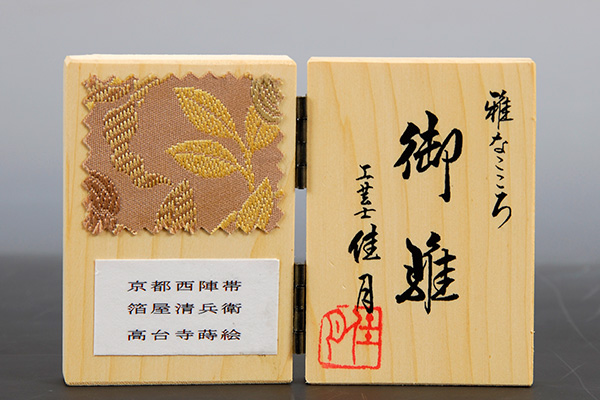 京都西陣帯
箔屋清兵衛
高台寺蒔絵
雅なこころ
御雛
工芸士 佳月
佳月